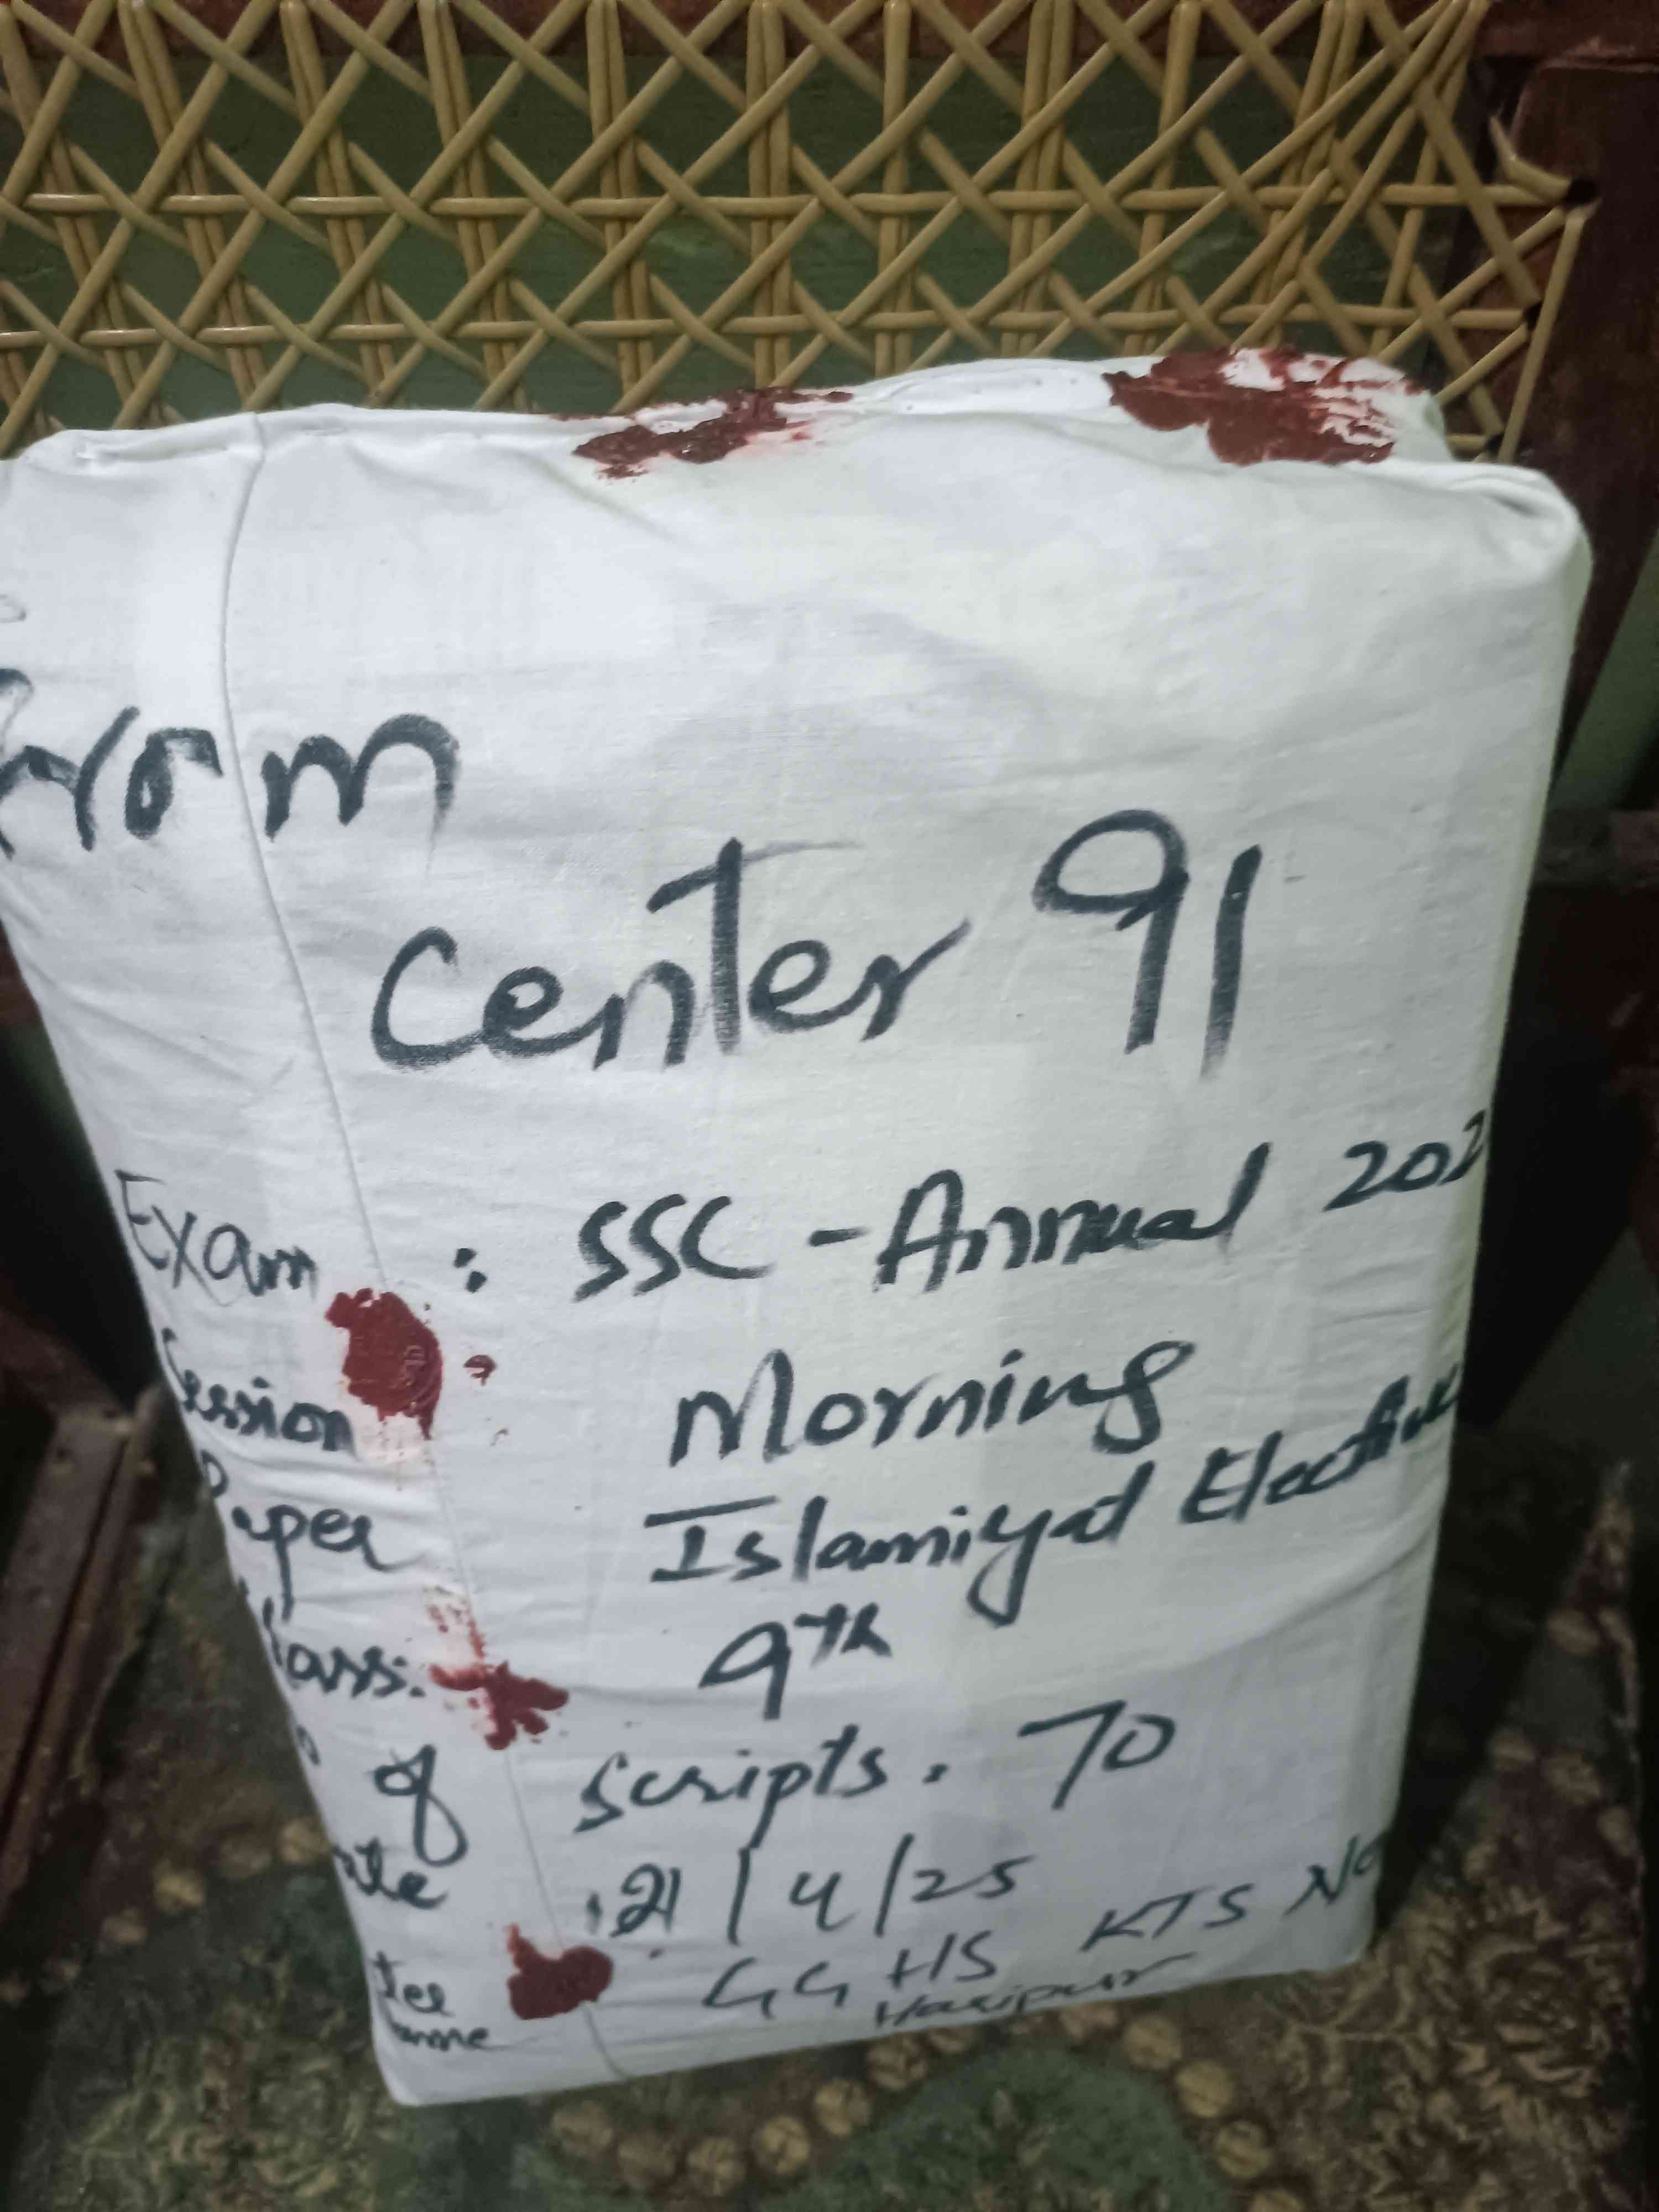 From
Center 91
Exam : SSC - Annual 202
Session Morning
Paper Islamiyat Elective
lass. 9th
o of Scripts. 70
ate : 21/4/25
GGHS KTS No
Haripur
ame